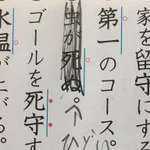 家を留守にす
第一のコース。
虫が死ぬ。
ひどい
ゴールを死守す
水温が上がる。